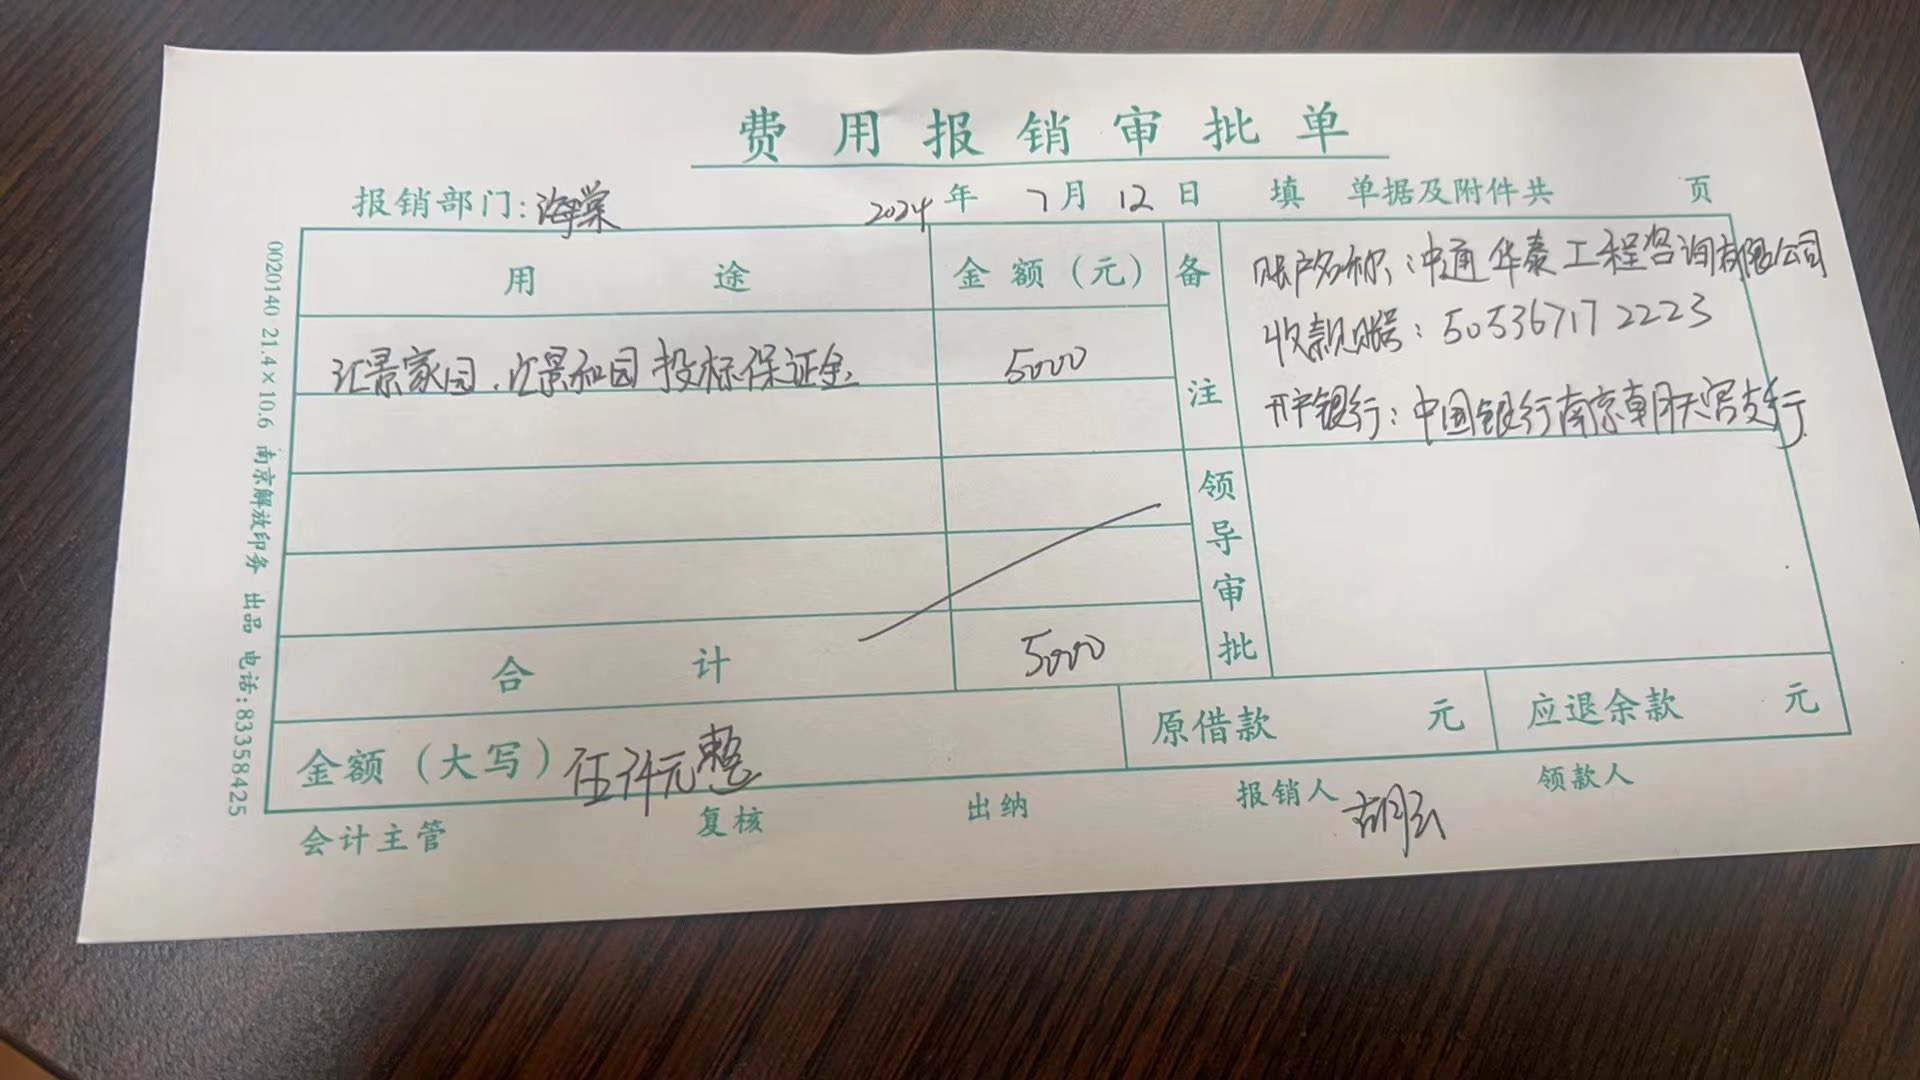 费用报销审批单
报销部门:海棠 2024年7月12日 填 单据及附件共 页
用途 金额(元) 备注
账户名称:中通华泰工程咨询有限公司
收款账号:505367172223
开户银行:中国银行南京朝天宫支行
汇景家园、汇景和园投标保证金 5000
领导审批
合计 5000
金额(大写)伍仟元整 原借款 元 应退余款 元
会计主管 复核 出纳 报销人 胡云 领款人
0020140 21.4×10.6 南京解放印务 出品 电话:83358425